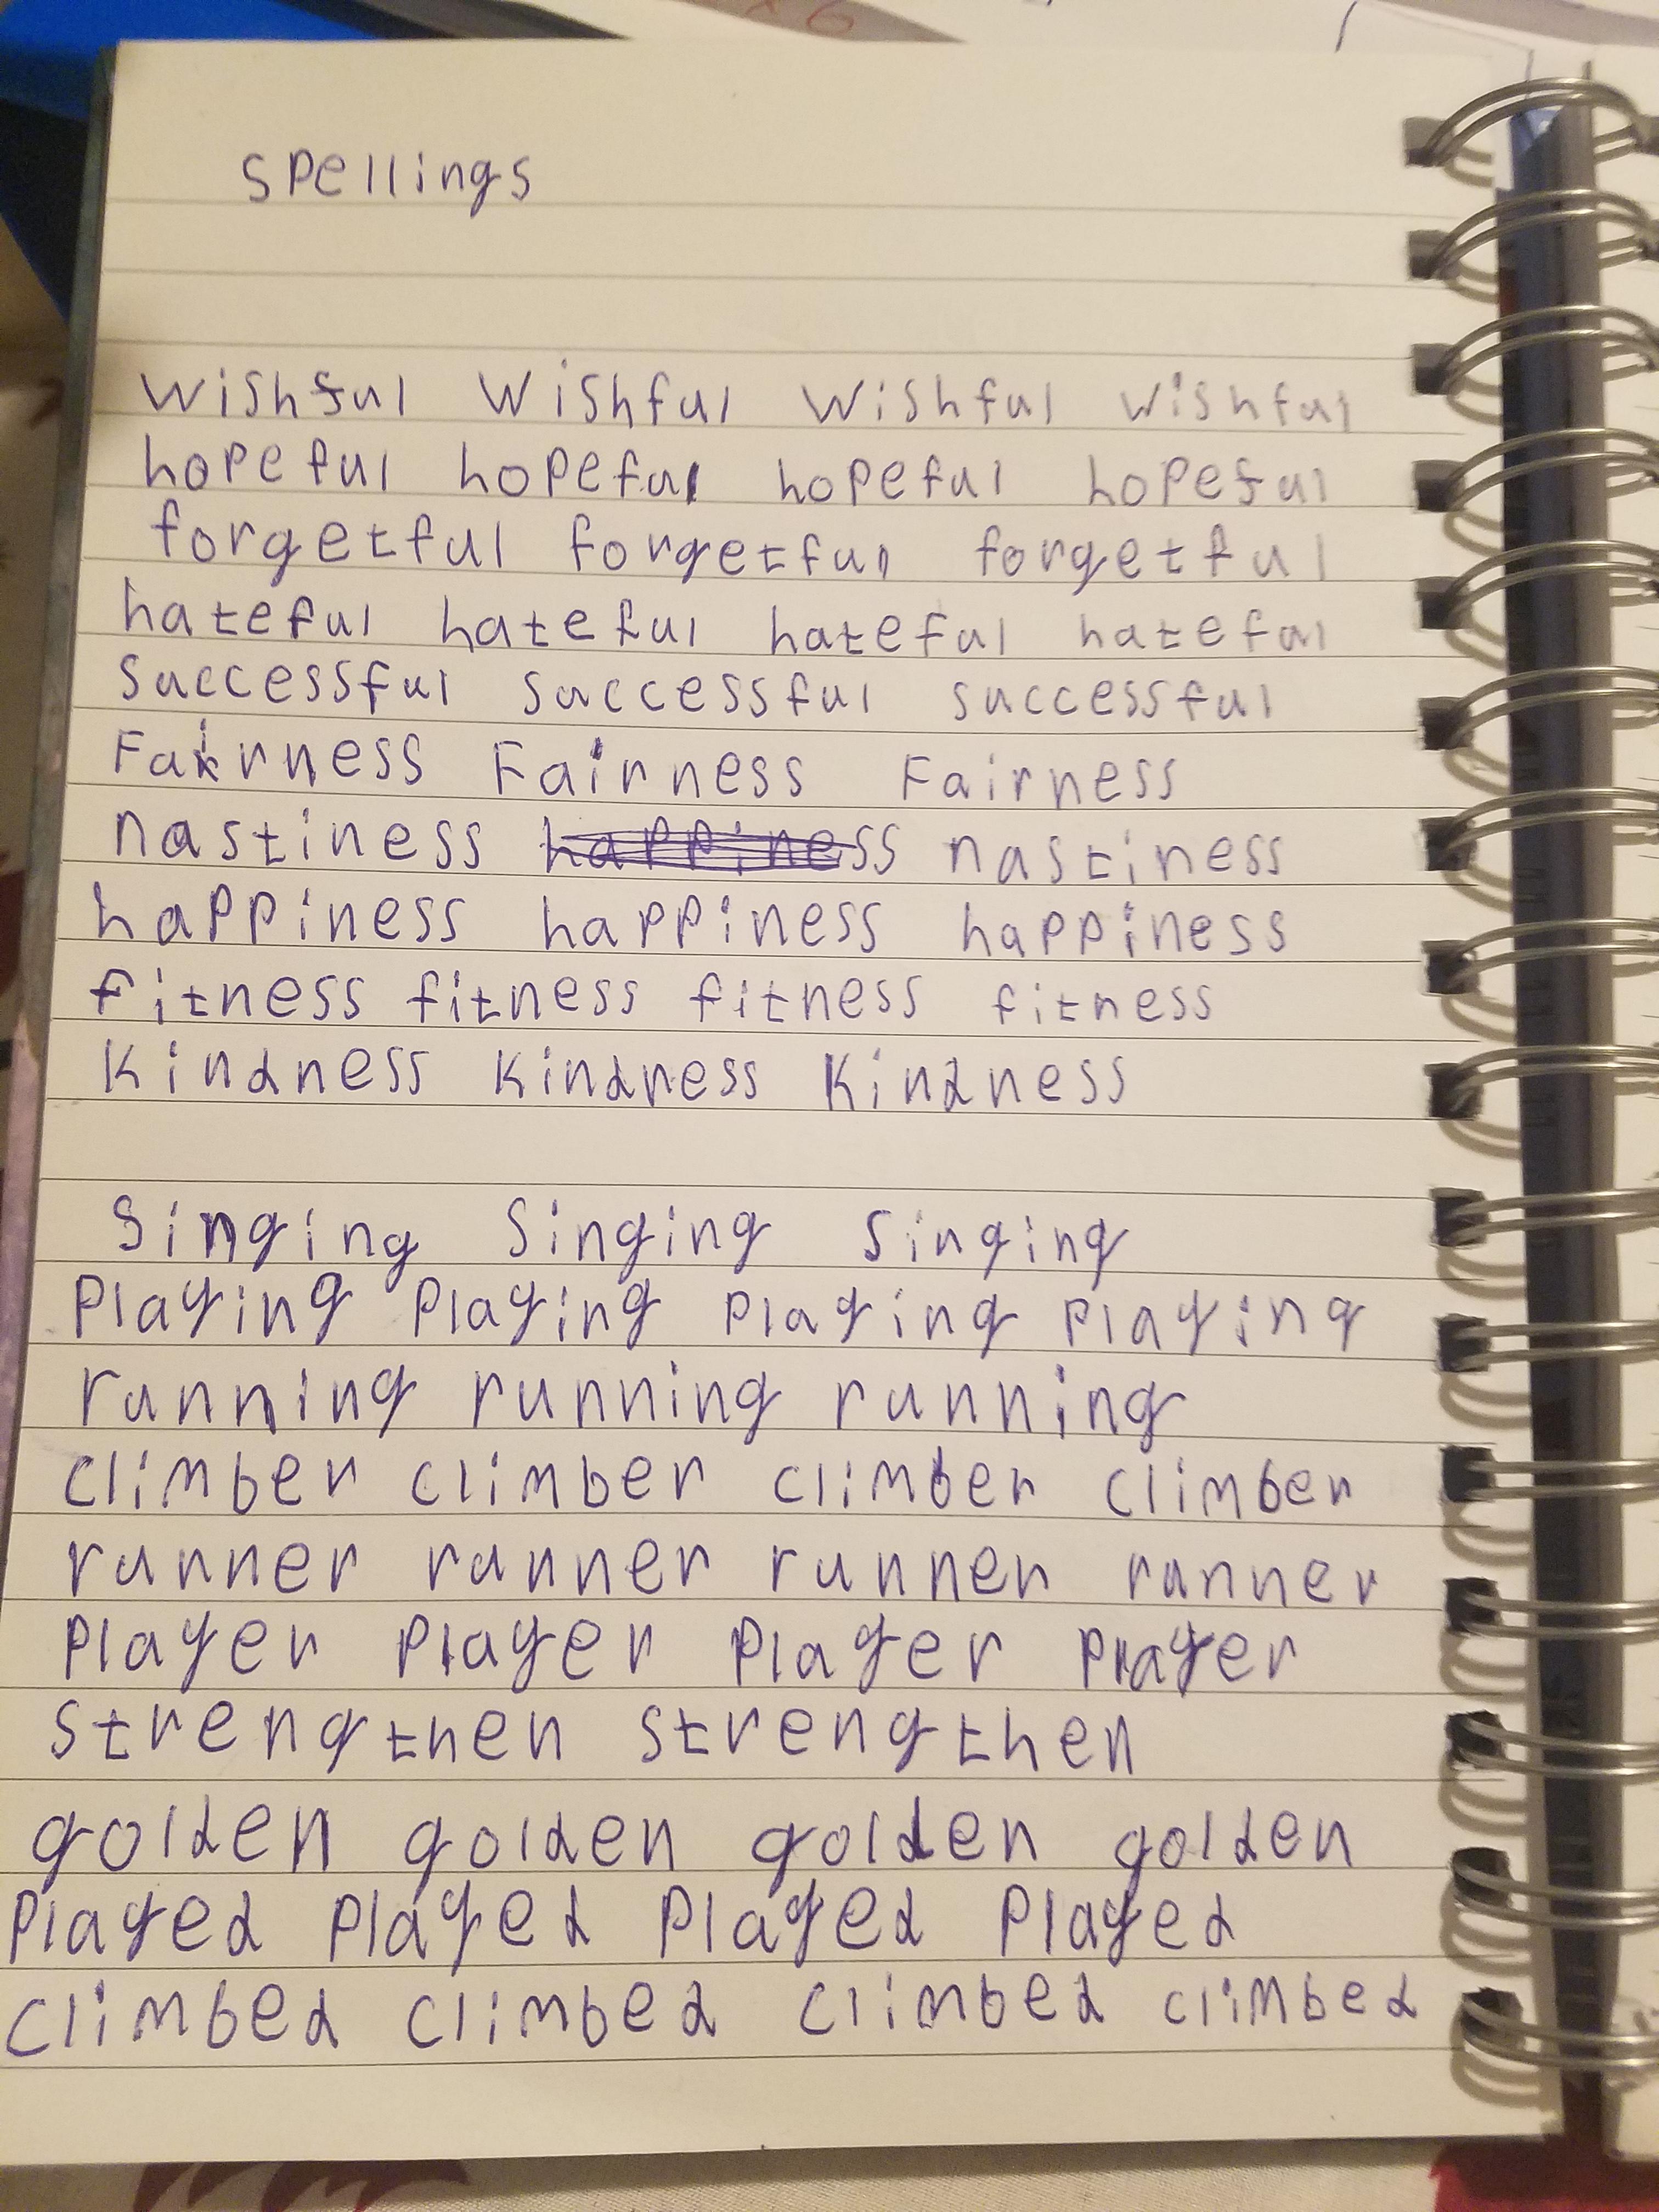 spellings
wishful wishful wishful wishful
hopeful hopeful hopeful hopeful
forgetful forgetful forgetful
hateful hateful hateful hateful
successful successful successful
Fairness Fairness Fairness
nastiness happiness nastiness
happiness happiness happiness
fitness fitness fitness fitness
kindness kindness kindness
Singing Singing Singing
Playing playing playing playing
running running running
climber climber climber climber
runner runner runner runner
Player Player Player Player
strengthen strengthen
golden golden golden golden
Played Played Played Played
climbed climbed climbed climbed